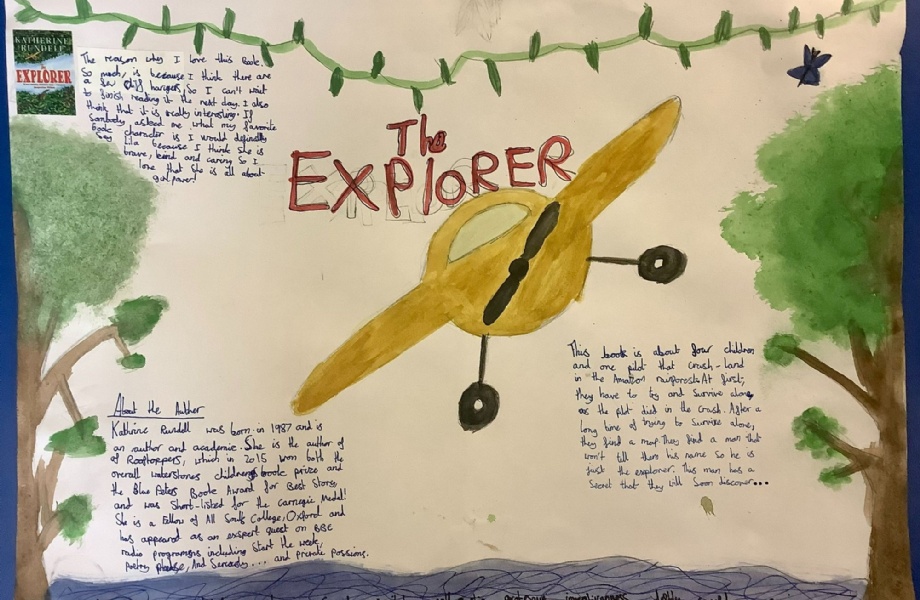 KATHERINE
RUNDELL
EXPLORER
The reason why I love this Book.
So much, is because I think there are
a few cliff hangers, So I can't wait
to finish reading it the next day. I also
think that it is really interesting. If
sombody asked me what my favorite
Book character is I would definitly
say Lila because I think She is
brave, kind and caring So I
love that She is all about
girl power!
The
EXPlORER
This book is about four children
and one pilot that crash-land
in the Amazon rainforest. At first,
they have to try and Survive alone,
as the pilot died in the crash. After a
long time of trying to Survive alone,
they find a map. They find a man that
won't tell them his name so he is
just the explorer. This man has a
Secret that they will Soon discover...
About the Author
Kathrine Rundell was born in 1987 and is
an author and academic. She is the author of
of Rooftoppers, which in 2015 won both the
overall waterstones childrens book prize and
the Blue Peter Book Award for Best Story,
and was Short-listed for the carnegie Medal!
She is a Fellow of All Souls College, Oxford and
has appeared as an exspert guest on BBC
radio programms including Start the week,
poetry please, And Seriously.... and private passions.